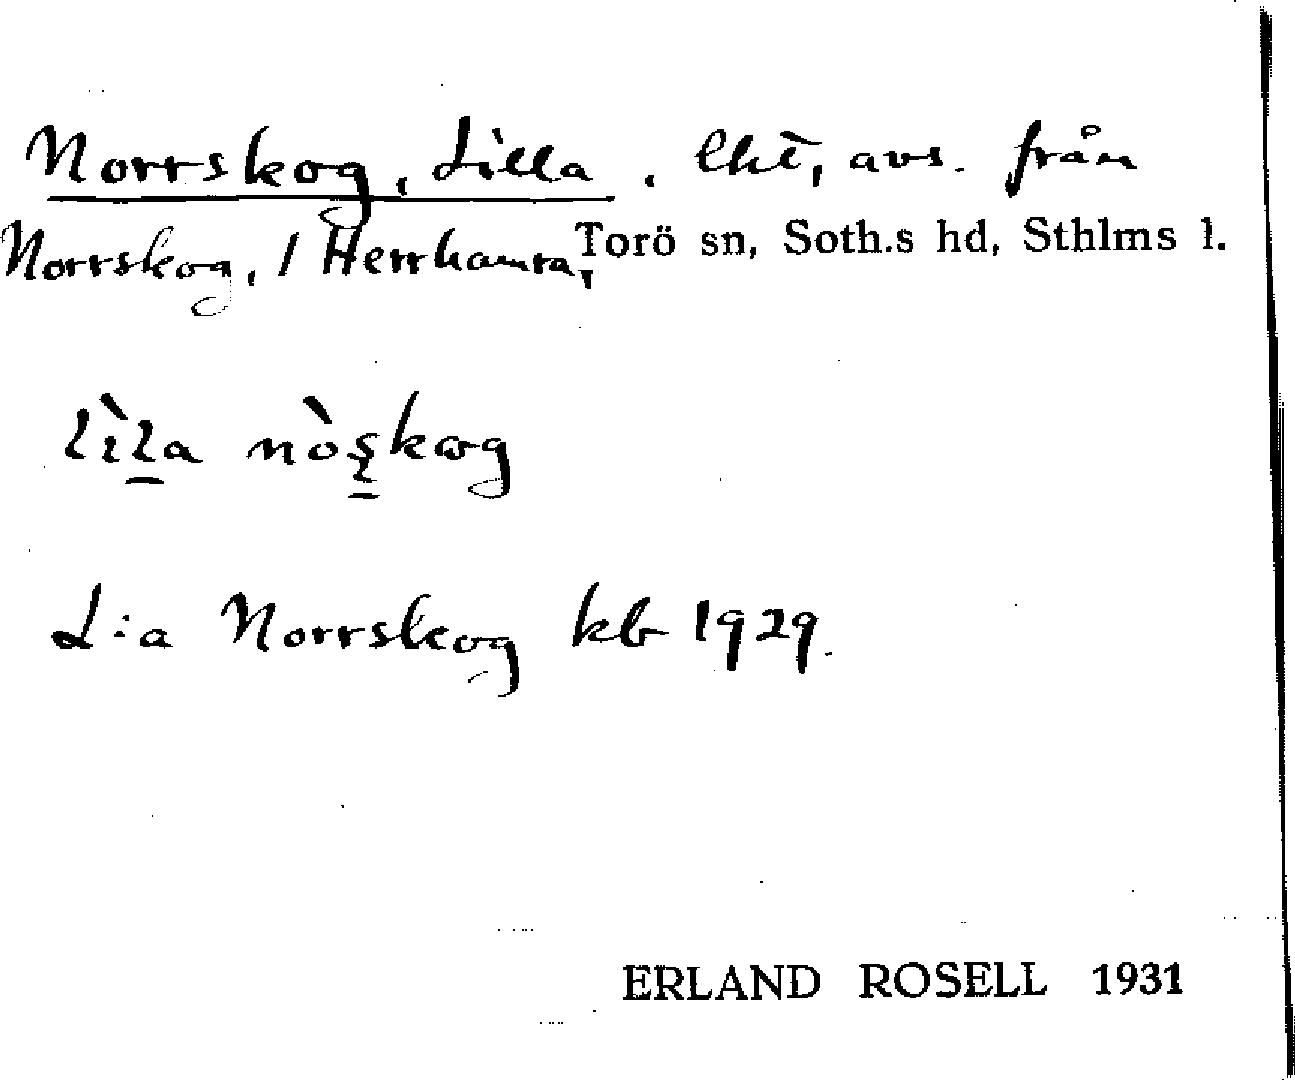 Norrskog, Lilla, lht, avs. från
Norrskog, / Herrhamra, Torö sn, Soth.s hd, Sthlms l.
lìla nòşkog
L:a Norrskog kb 1929.
ERLAND ROSELL 1931